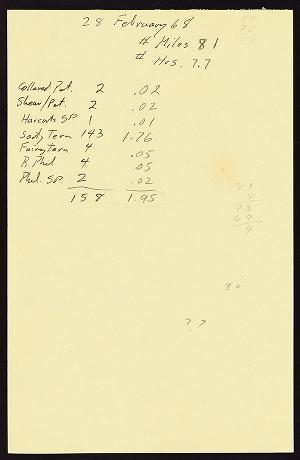 28 February 68
# Miles 81
# Hrs. 7.7
Collared Pet. 2 .02
Shear/Pet. 2 .02
Harcourts SP 1 .01
Sooty Tern 143 1.76
Fairy Tern 4 .05
B. Phal 4 .05
Phal. SP. 2 .02
158 1.95
81
73
69
4
30
77